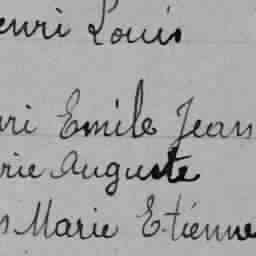 enri Louis
ri Emile Jean
rie Auguste
s Marie Etienne